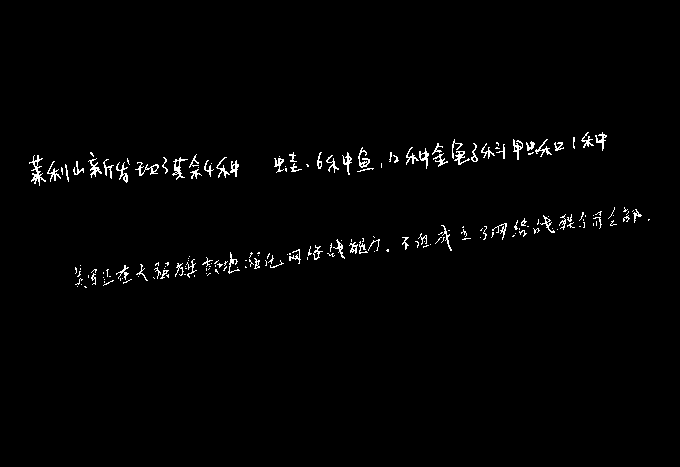 莱利山新发现了其余4种 蛙、6种鱼,12种金龟子科甲虫和1种
美军还在大张旗鼓地强化网络战能力.不但成立了网络战联合司令部.